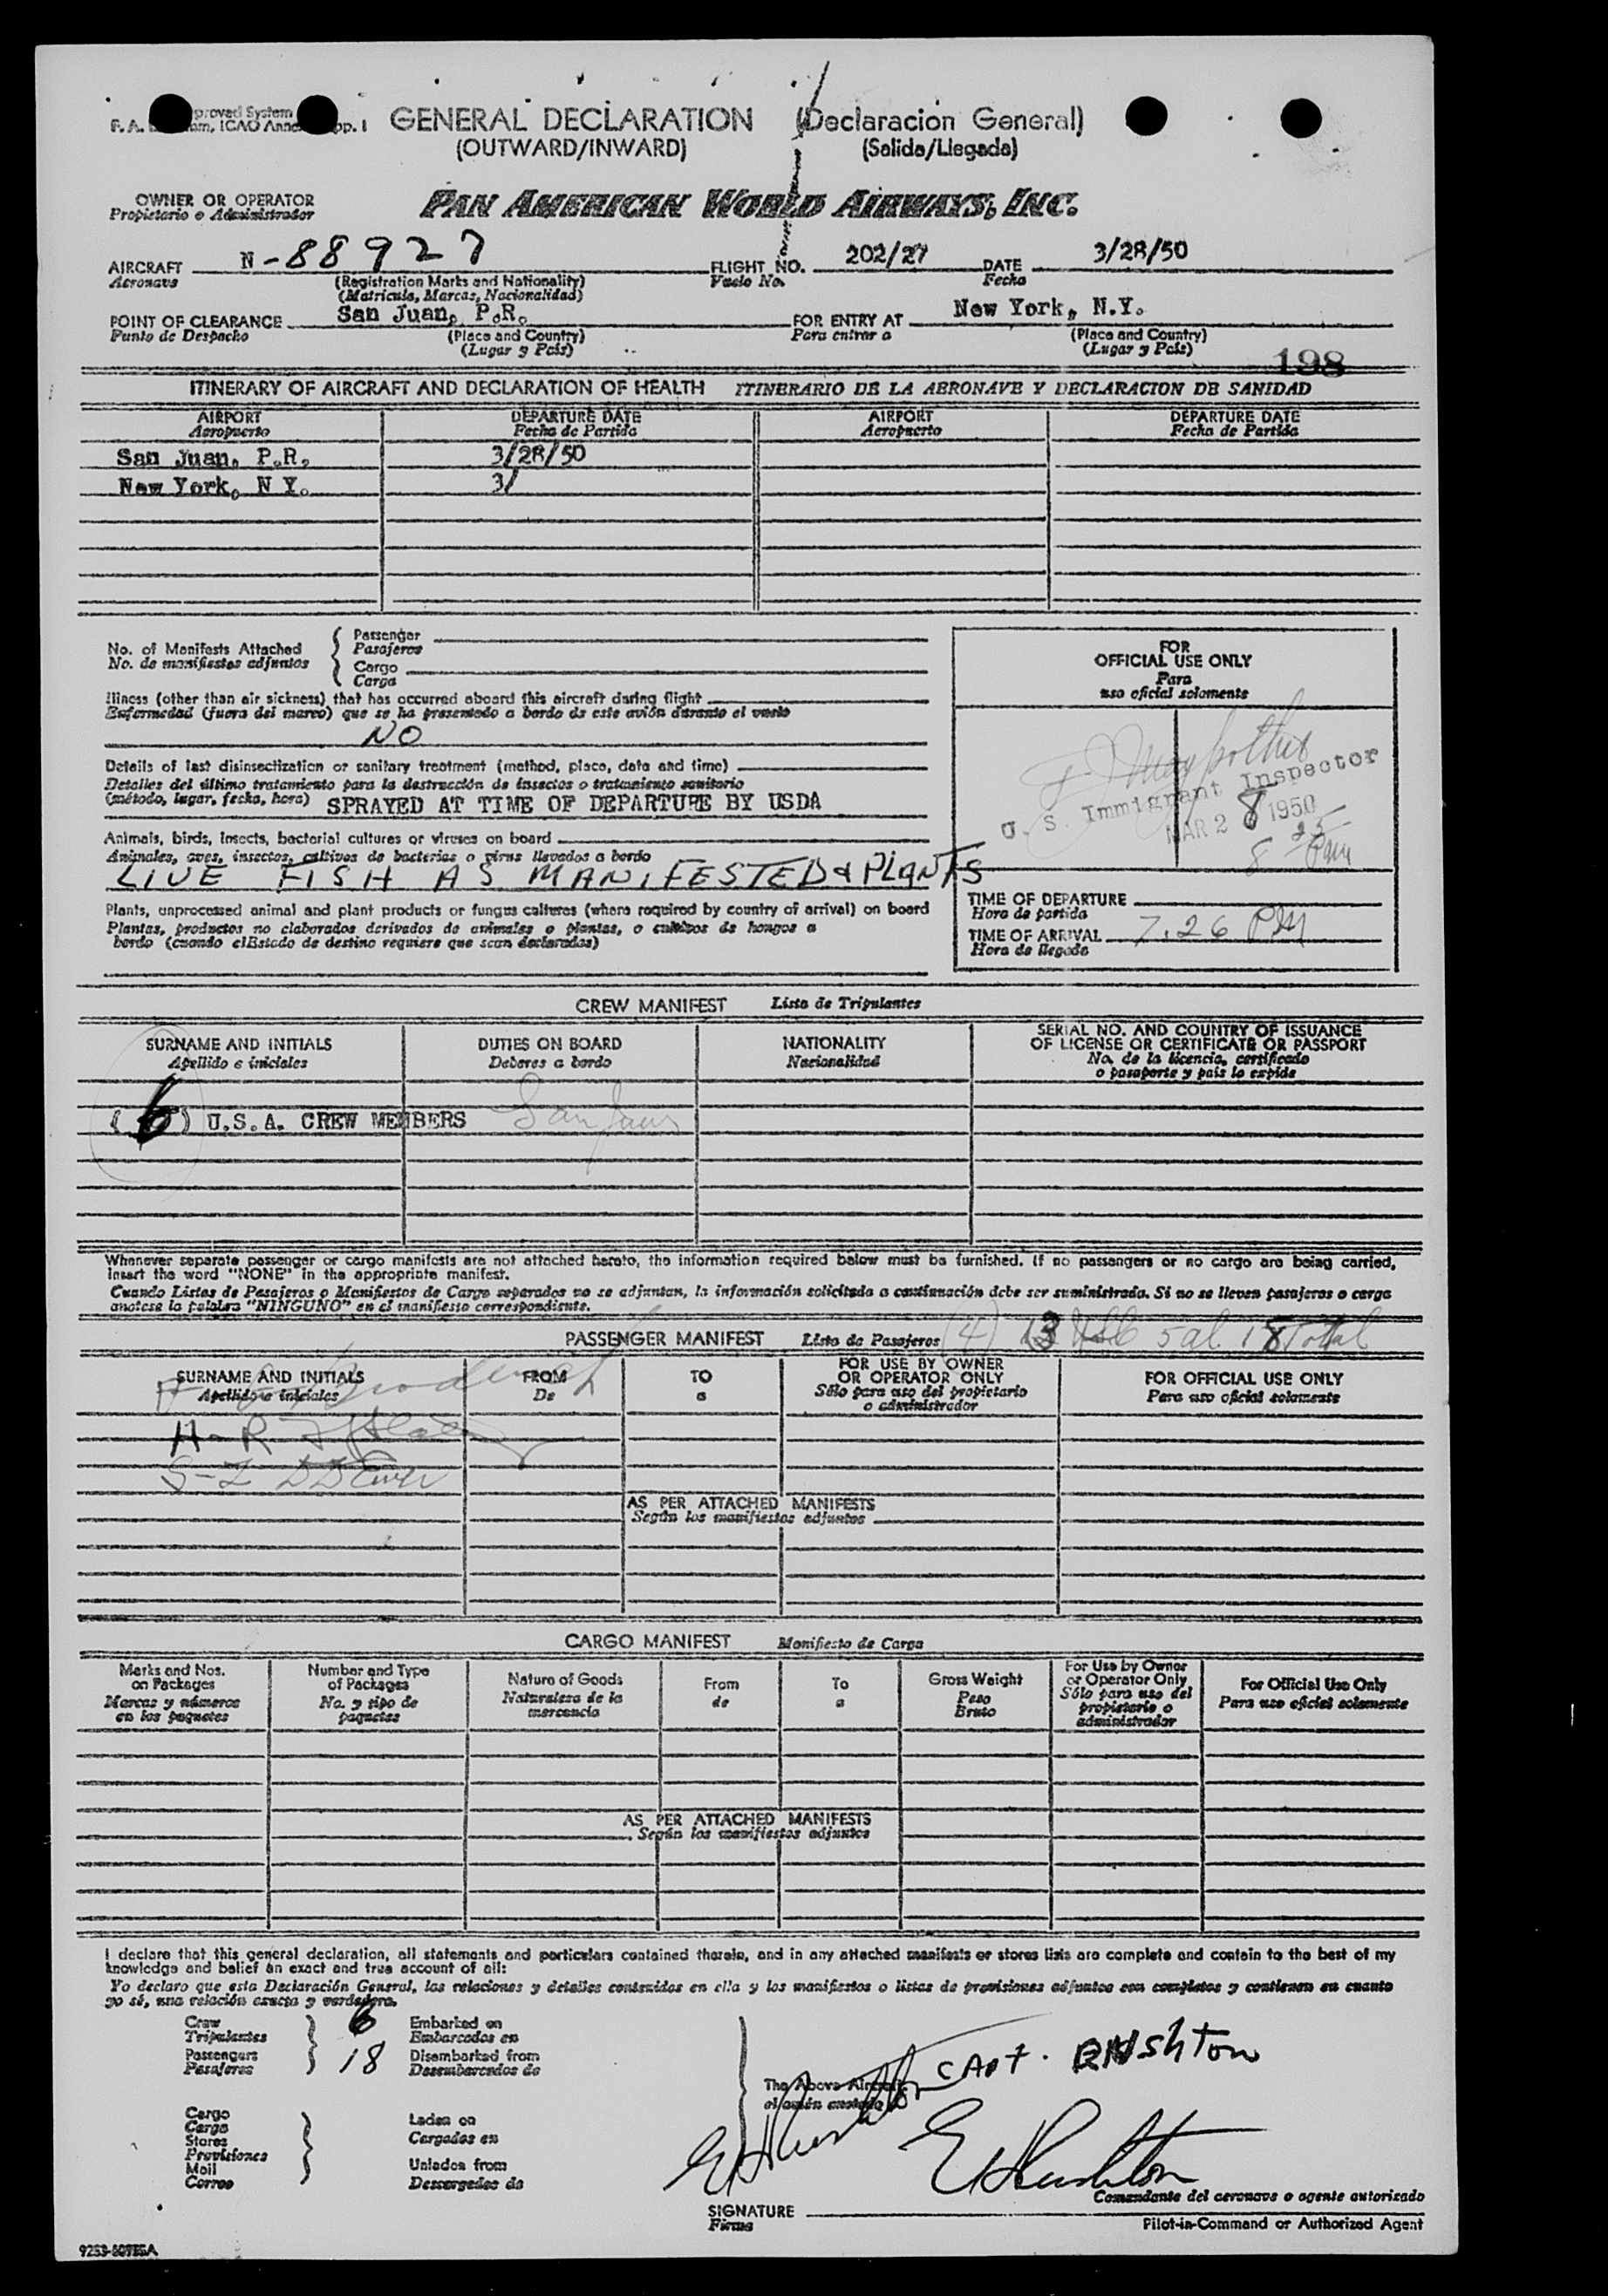 proved System
GENERAL DECLARATION (Declaración General)
(OUTWARD/INWARD) (Salida/Llegada)
OWNER OR OPERATOR
Propietario o Administrador
PAN AMERICAN WORLD AIRWAYS, INC.
AIRCRAFT N-88927 FLIGHT NO. 202/27 DATE 3/28/50
Aeronave (Registration Marks and Nationality) Vuelo No. Fecha
(Matricula, Marcas, Nacionalidad)
POINT OF CLEARANCE San Juan, P.R. FOR ENTRY AT New York, N.Y.
Punto de Despacho (Place and Country) Para entrar a (Place and Country)
(Lugar y País) (Lugar y País)
198
ITINERARY OF AIRCRAFT AND DECLARATION OF HEALTH ITINERARIO DE LA AERONAVE Y DECLARACION DE SANIDAD
AIRPORT DEPARTURE DATE AIRPORT DEPARTURE DATE
Aeropuerto Fecha de Partida Aeropuerto Fecha de Partida
San Juan, P.R. 3/28/50
New York, N Y. 3/
No. of Manifests Attached
No. de manifiestos adjuntos
Passenger
Pasajeros
Cargo
Carga
Illness (other than air sickness) that has occurred aboard this aircraft during flight
Enfermedad (fuera del mareo) que se ha presentado a bordo de este avión durante el vuelo
NO
Details of last disinsectization or sanitary treatment (method, place, date and time)
Detalles del último tratamiento para la destrucción de insectos o tratamiento sanitario
(método, lugar, fecha, hora) SPRAYED AT TIME OF DEPARTURE BY USDA
Animals, birds, insects, bacterial cultures or viruses on board
Animales, aves, insectos, cultivos de bacterias o virus llevados a bordo
LIVE FISH AS MANIFESTED & PLANTS
Plants, unprocessed animal and plant products or fungus cultures (where required by country of arrival) on board
Plantas, productos no elaborados derivados de animales o plantas, o cultivos de hongos a
bordo (cuando el Estado de destino requiere que sean declaradas)
FOR
OFFICIAL USE ONLY
Para
uso oficial solamente
U. S. Immigrant Inspector
MAR 28 1950
8 25 Pm
TIME OF DEPARTURE
Hora de partida
TIME OF ARRIVAL 7.26 PM
Hora de llegada
CREW MANIFEST Lista de Tripulantes
SURNAME AND INITIALS DUTIES ON BOARD NATIONALITY SERIAL NO. AND COUNTRY OF ISSUANCE
OF LICENSE OR CERTIFICATE OR PASSPORT
Apellido e iniciales Deberes a bordo Nacionalidad No. de la licencia, certificado
o pasaporte y país lo expide
(6) U.S.A. CREW MEMBERS San Juan
Whenever separate passenger or cargo manifests are not attached hereto, the information required below must be furnished. If no passengers or no cargo are being carried,
insert the word "NONE" in the appropriate manifest.
Cuando Listas de Pasajeros o Manifiestos de Carga separados no se adjuntan, la información solicitada a continuación debe ser suministrada. Si no se lleven pasajeros o carga
anotese la palabra "NINGUNO" en el manifiesto correspondiente.
PASSENGER MANIFEST Lista de Pasajeros (4) 13 USC 5 al 18 Total
SURNAME AND INITIALS FROM TO FOR USE BY OWNER
OR OPERATOR ONLY FOR OFFICIAL USE ONLY
Apellido e iniciales De a Sólo para uso del propietario
o administrador Para uso oficial solamente
H-R
S-Z
AS PER ATTACHED MANIFESTS
Según los manifiestos adjuntos
CARGO MANIFEST Manifiesto de Carga
Marks and Nos.
on Packages
Marcas y números
en los paquetes
Number and Type
of Packages
No. y tipo de
paquetes
Nature of Goods
Naturaleza de la
mercancía
From
de
To
a
Gross Weight
Peso
Bruto
For Use by Owner
or Operator Only
Sólo para uso del
propietario o
administrador
For Official Use Only
Para uso oficial solamente
AS PER ATTACHED MANIFESTS
Según los manifiestos adjuntos
I declare that this general declaration, all statements and particulars contained therein, and in any attached manifests or stores lists are complete and contain to the best of my
knowledge and belief an exact and true account of all:
Yo declaro que esta Declaración General, las relaciones y detalles contenidos en ella y los manifiestos o listas de provisiones adjuntos son completos y contienen en cuanto
yo sé, una relación exacta y verdadera.
Crew
Tripulantes 6
Passengers
Pasajeros 18
Embarked on
Embarcados en
Disembarked from
Desembarcados de
Cargo
Carga
Stores
Provisiones
Mail
Correo
Laden on
Cargados en
Unladen from
Descargados de
The Above Aircraft
el avión anotado
CAPT. RUSHTON
E Rushton
E Rushton
Comandante del aeronave o agente autorizado
SIGNATURE
Firma
Pilot-in-Command or Authorized Agent